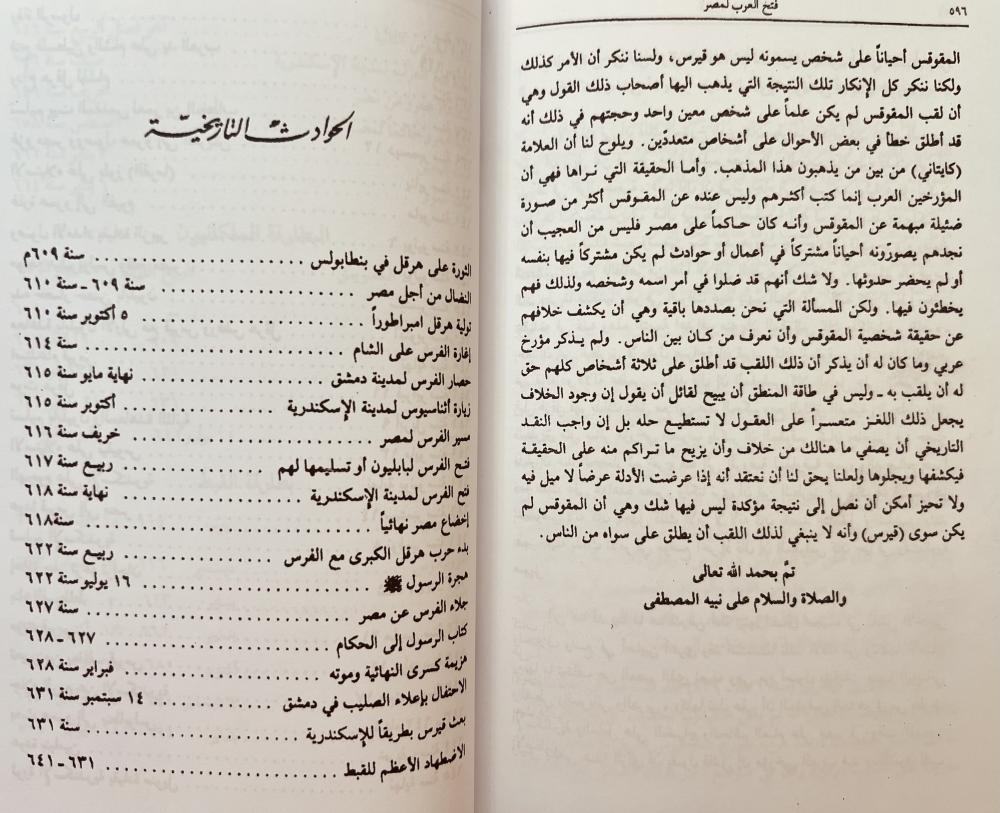 ٥٩٦
فتح العرب لمصر
المقوقس أحياناً على شخص يسمونه ليس هو قيرس، ولسنا ننكر أن الأمر كذلك
ولكنا ننكر كل الإنكار تلك النتيجة التي يذهب اليها أصحاب ذلك القول وهي
أن لقب المقوقس لم يكن علماً على شخص معين واحد وحجتهم في ذلك أنه
قد أطلق خطأ في بعض الأحوال على أشخاص متعددين. ويلوح لنا أن العلامة
(كايتاني) من بين من يذهبون هذا المذهب. وأما الحقيقة التي نراها فهي أن
المؤرخين العرب إنما كتب أكثرهم وليس عنده عن المقوقس أكثر من صورة
ضئيلة مبهمة عن المقوقس وأنه كان حاكماً على مصر فليس من العجيب أن
نجدهم يصوّرونه أحياناً مشتركاً في أعمال أو حوادث لم يكن مشتركاً فيها بنفسه
أو لم يحضر حدوثها. ولا شك أنهم قد ضلوا في أمر اسمه وشخصه ولذلك فهم
يخطئون فيها. ولكن المسألة التي نحن بصددها باقية وهي أن يكشف خلافهم
عن حقيقة شخصية المقوقس وأن نعرف من كان بين الناس. ولم يذكر مؤرخ
عربي وما كان له أن يذكر أن ذلك اللقب قد أطلق على ثلاثة أشخاص كلهم حق
له أن يلقب به ـ وليس في طاقة المنطق أن يبيح لقائل أن يقول إن وجود الخلاف
يجعل ذلك اللغز متعسراً على العقول لا تستطيع حله بل إن واجب النقد
التاريخي أن يصفي ما هنالك من خلاف وأن يزيح ما تراكم منه على الحقيقة
فيكشفها ويجلوها ولعلنا يحق لنا أن نعتقد أنه إذا عرضت الأدلة عرضاً لا ميل فيه
ولا تحيز أمكن أن نصل إلى نتيجة مؤكدة ليس فيها شك وهي أن المقوقس لم
يكن سوى (قيرس) وأنه لا ينبغي لذلك اللقب أن يطلق على سواه من الناس.
تمَّ بحمد الله تعالى
والصلاة والسلام على نبيه المصطفى
الحوادث التاريخيّة
الثورة على هرقل في بنطابولس . . . . . . . . . . سنة ٦٠٩م
النضال من أجل مصر . . . . . . . . . . سنة ٦٠٩ ـ سنة ٦١٠
تولية هرقل امبراطوراً . . . . . . . . . . ٥ أكتوبر سنة ٦١٠
إغارة الفرس على الشام . . . . . . . . . . سنة ٦١٤
حصار الفرس لمدينة دمشق . . . . . . . . . . نهاية مايو سنة ٦١٥
زيارة أثناسيوس لمدينة الإسكندرية . . . . . . . . . . أكتوبر سنة ٦١٥
مسير الفرس لمصر . . . . . . . . . . خريف سنة ٦١٦
فتح الفرس لبابليون أو تسليمها لهم . . . . . . . . . . ربيع سنة ٦١٧
فتح الفرس لمدينة الإسكندرية . . . . . . . . . . نهاية سنة ٦١٨
إخضاع مصر نهائياً . . . . . . . . . . سنة٦١٨
بدء حرب هرقل الكبرى مع الفرس . . . . . . . . . . ربيع سنة ٦٢٢
هجرة الرسول ﷺ . . . . . . . . . . ١٦ يوليو سنة ٦٢٢
جلاء الفرس عن مصر . . . . . . . . . . سنة ٦٢٧
كتاب الرسول إلى الحكام . . . . . . . . . . ٦٢٧ ـ ٦٢٨
هزيمة كسرى النهائية وموته . . . . . . . . . . فبراير سنة ٦٢٨
الاحتفال بإعلاء الصليب في دمشق . . . . . . . . . . ١٤ سبتمبر سنة ٦٣١
بعث قيرس بطريقاً للإسكندرية . . . . . . . . . . سنة ٦٣١
الاضطهاد الأعظم للقبط . . . . . . . . . . ٦٣١ ـ ٦٤١